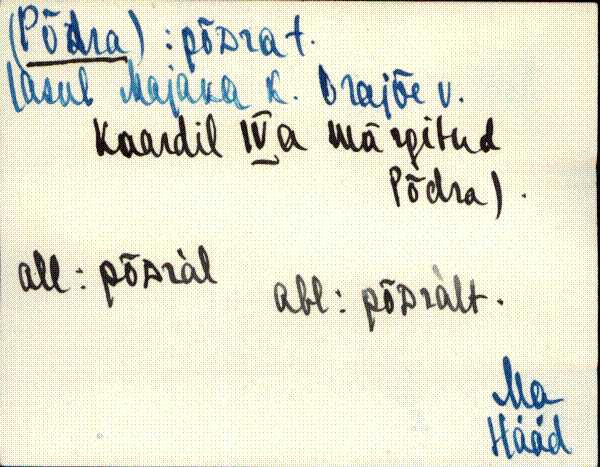 (Põdra) : põDra t.
(asub Majaka k. Orajõe v.
Kaardil IVa märgitud
Põdra).
all : põDràl
abl : põDràlt.
Ma
Hääd